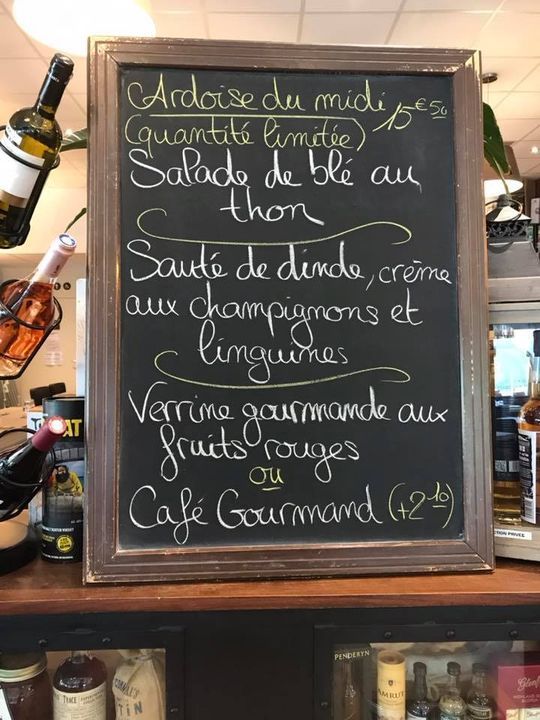 Ardoise du midi 15€50
(quantité limitée)
Salade de blé au
thon
Sauté de dinde, crème
aux champignons et
linguines
Verrine gourmande aux
fruits rouges
ou
Café Gourmand (+2 10)
AT
CTION PRIVÉE
PENDERYN
AMRUT
TRACE
TIN